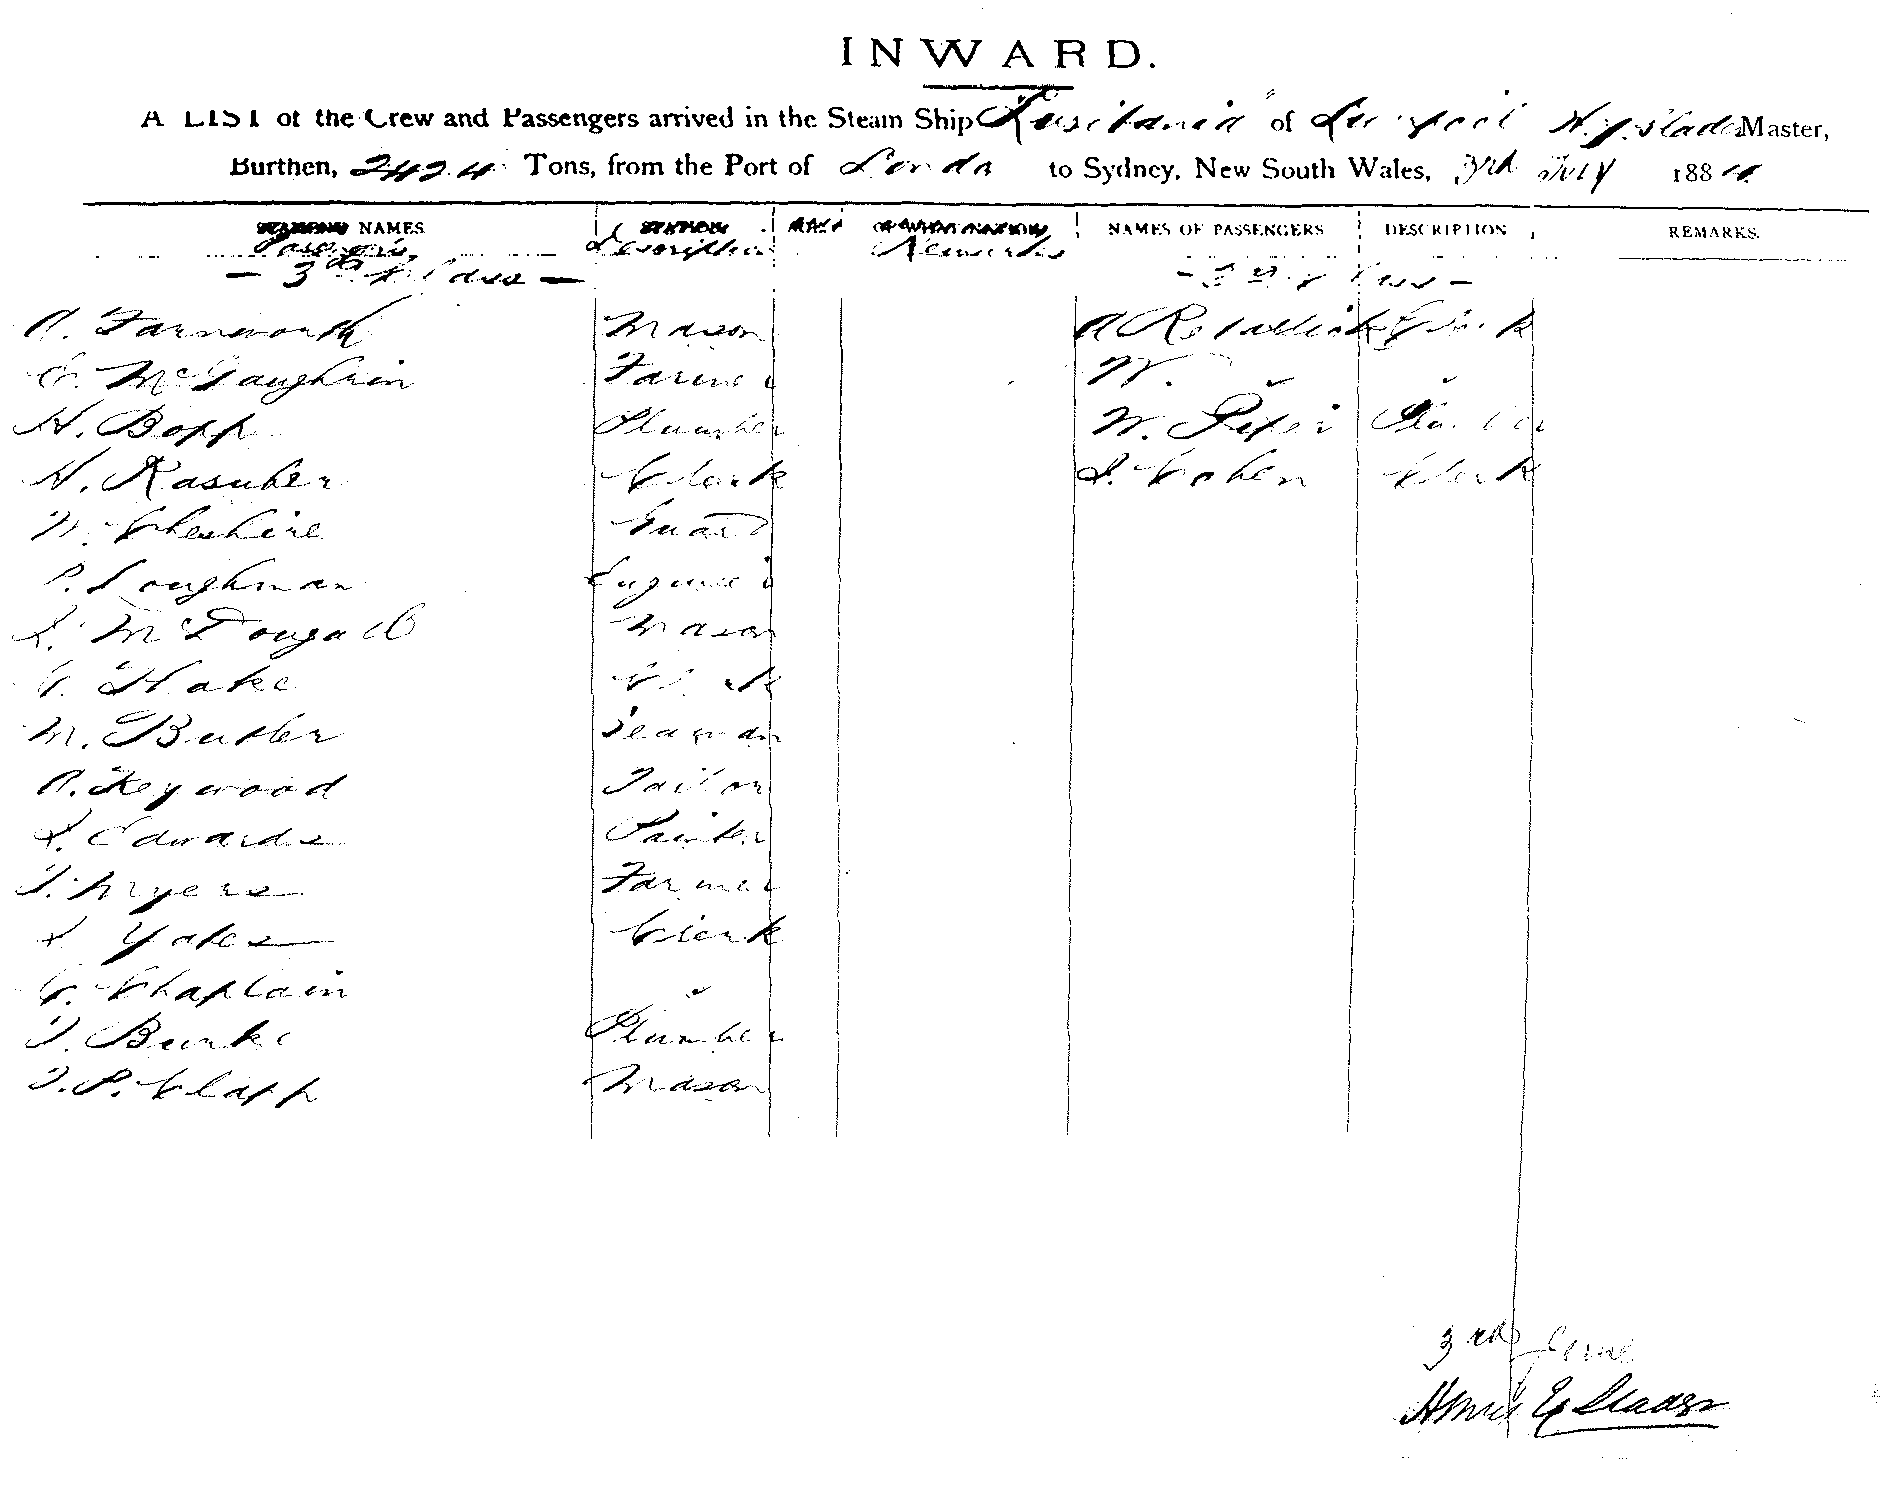 INWARD.
A LIST of the Crew and Passengers arrived in the Steam Ship Lusitania of Liverpool Master,
Burthen, 2424 Tons, from the Port of Londo to Sydney, New South Wales, 3rd July 188
NAMES STATION NAMES OF PASSENGERS DESCRIPTION REMARKS.
Passengers Description Remarks
- 3rd Class - - 3rd Class -
A. Farnworth Mason A
McLaughlin Farmer W.
H. Bopp Plumber W. Piper
H. Clerk S. Cohen Clerk
W. Cheshire Guard
P. Loughman Engineer
McDougall Mason
C. Hake Clerk
M. Butler Seaman
A. Heywood Tailor
S. Edwards Painter
T. Myers Farmer
Yates Clerk
C. Chaplain "
T. Burke Plumber
T. P. Clapp Mason
3rd